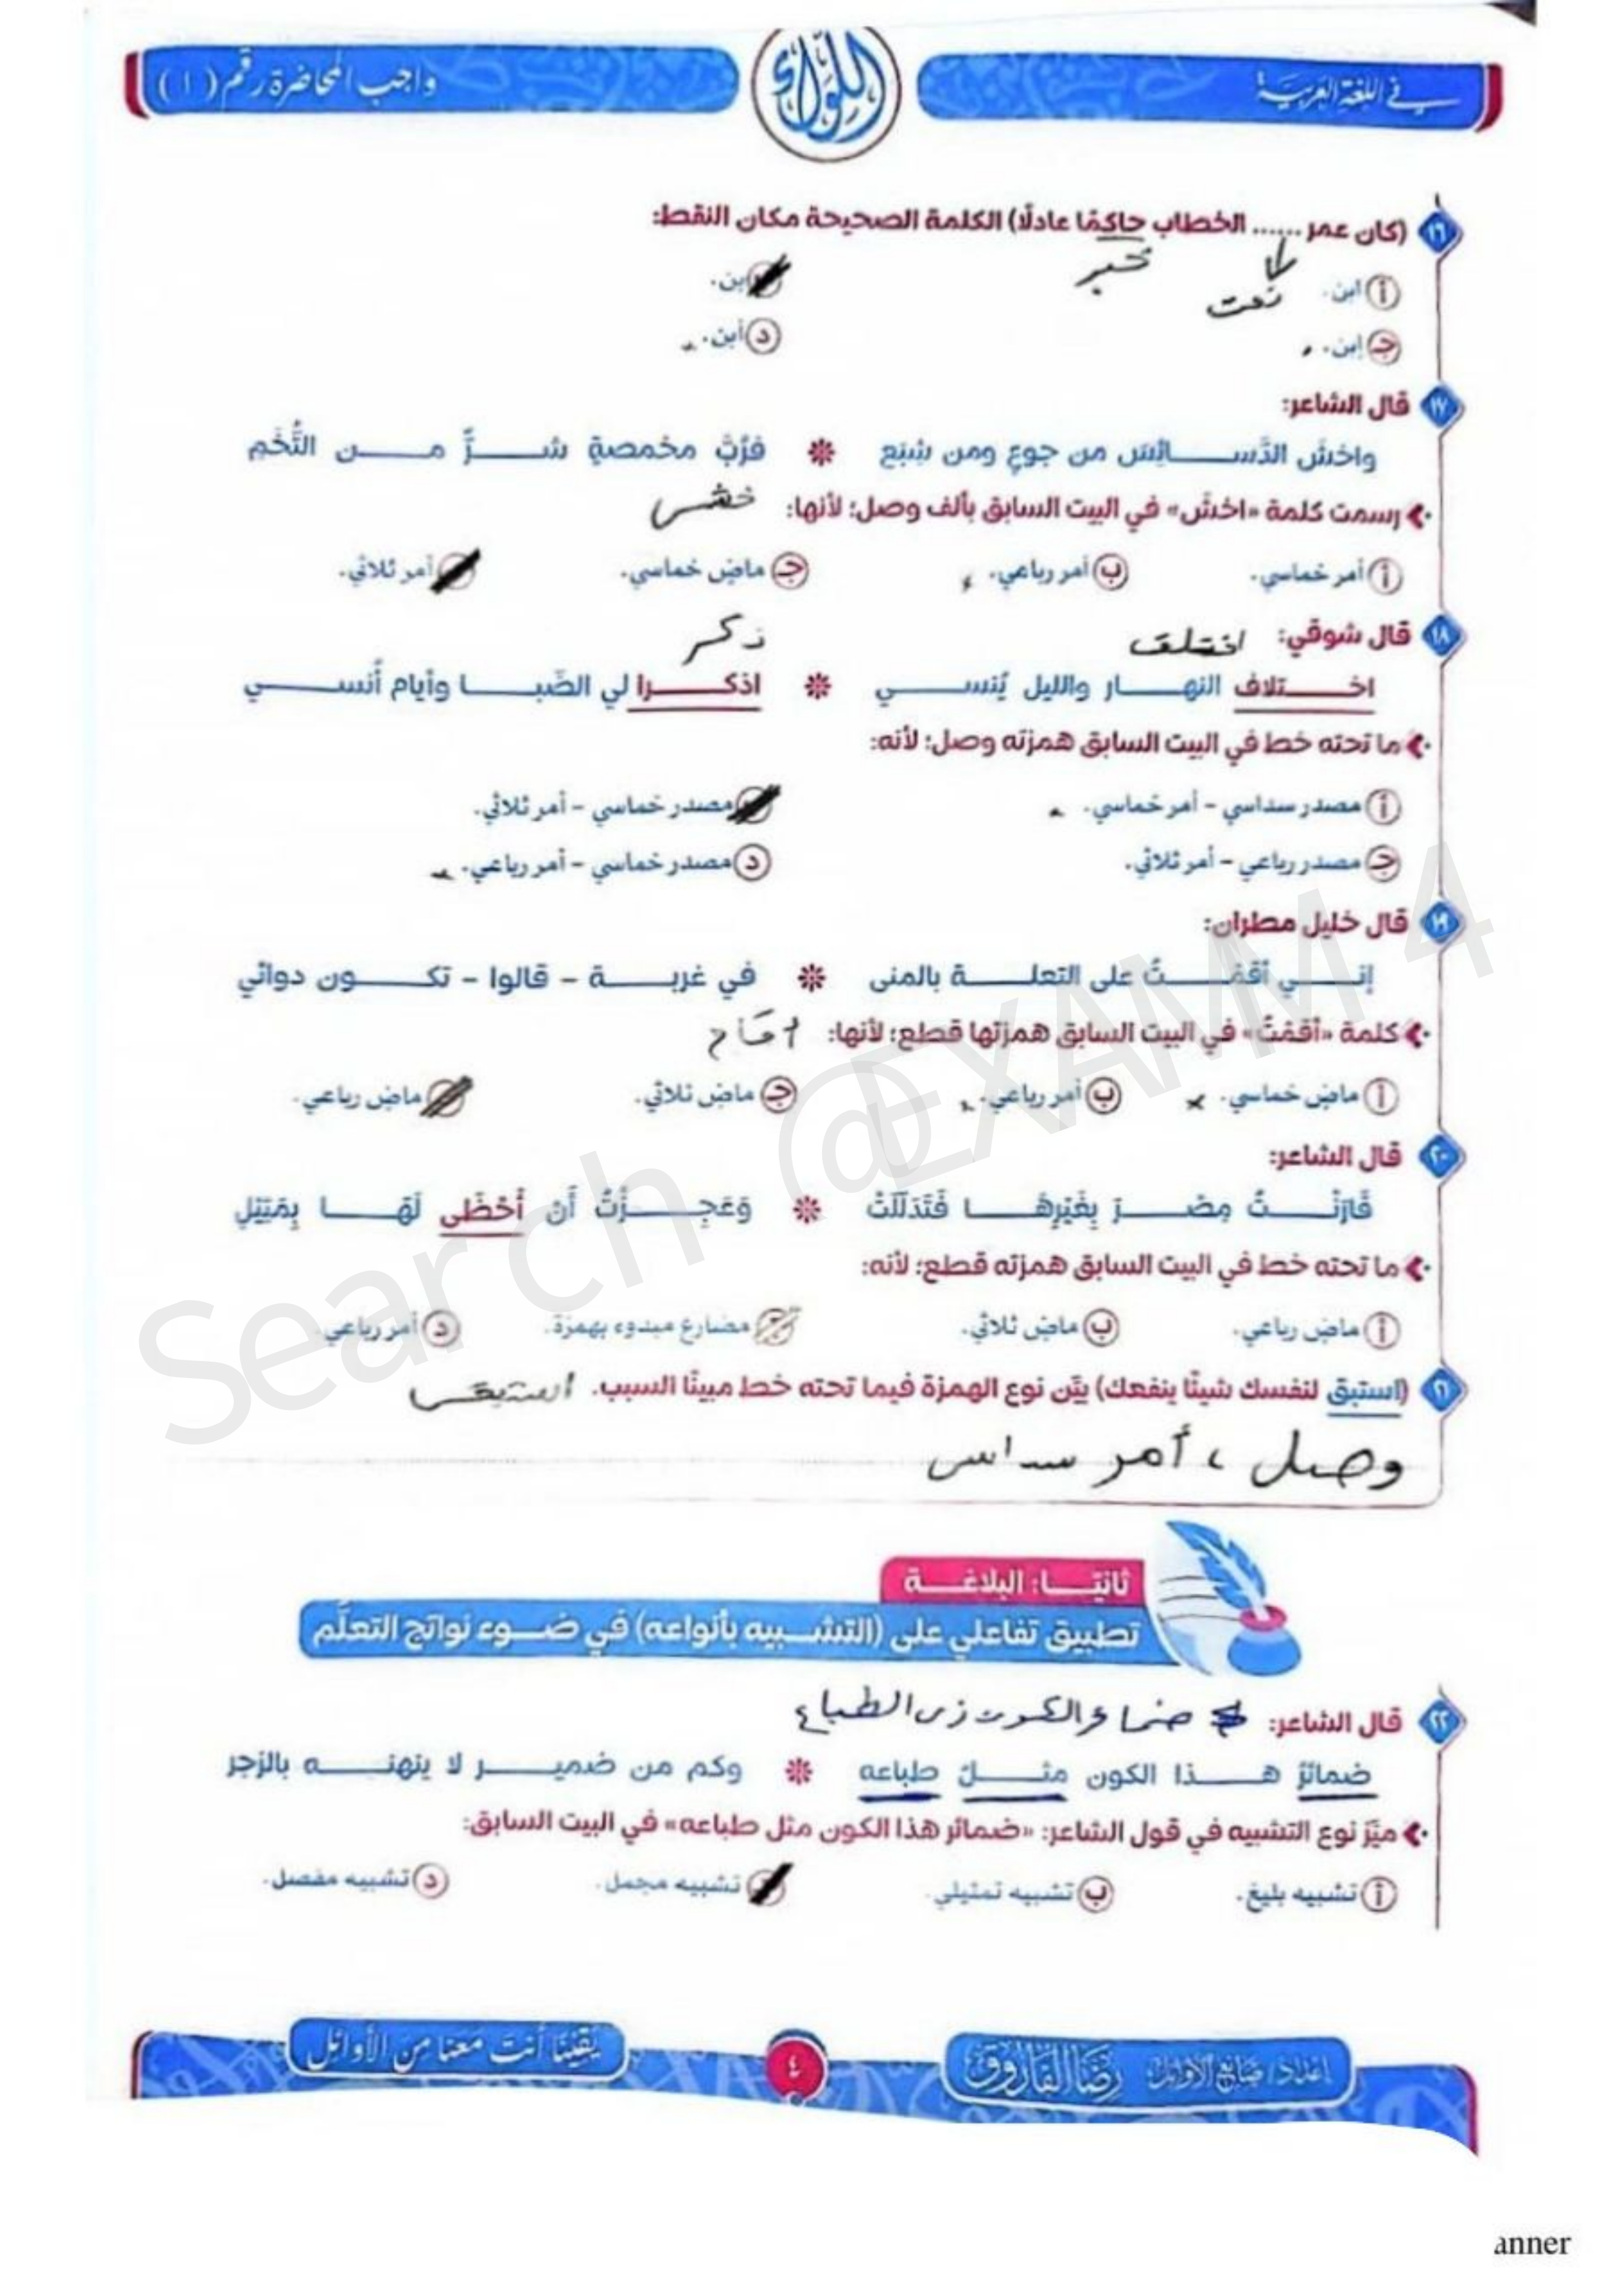 في اللغة العربية
اللواء
واجب المحاضرة رقم (١)
١٦ (كان عمر ...... الخطاب حاكمًا عادلًا) الكلمة الصحيحة مكان النقط:
خبر
نعت
أ ابن. بن.
ج إبن. د أبن.
١٧ قال الشاعر:
واخشَ الدَّســـائِسَ من جوعٍ ومن شِبَع ❋ فرُبَّ مخمصةٍ شـــرٌّ مـــن التُّخَمِ
رسمت كلمة «اخشَ» في البيت السابق بألف وصل؛ لأنها: خشى
أ أمر خماسي. ب أمر رباعي. ج ماضٍ خماسي. أمر ثلاثي.
١٨ قال شوقي: اختلف
ذكر
اخـــتلاف النهـــار والليل يُنســـي ❋ اذكـــرا لي الصِّبـــا وأيام أُنســـي
ما تحته خط في البيت السابق همزته وصل؛ لأنه:
أ مصدر سداسي - أمر خماسي. مصدر خماسي - أمر ثلاثي.
ج مصدر رباعي - أمر ثلاثي. د مصدر خماسي - أمر رباعي.
١٩ قال خليل مطران:
إنـــي أقمـــتُ على التعلـــة بالمنى ❋ في غربـــة - قالوا - تكـــون دوائي
كلمة «أقمْتُ» في البيت السابق همزتها قطع؛ لأنها: أقام
أ ماضٍ خماسي. ب أمر رباعي. ج ماضٍ ثلاثي. ماضٍ رباعي.
٢٠ قال الشاعر:
قَارَنْـــتُ مِصْـــرَ بِغَيْرِهَـــا فَتَدَلَّلَتْ ❋ وَعَجِـــزْتُ أَنْ أَحْظَى لَهَـــا بِمَثِيْلِ
ما تحته خط في البيت السابق همزته قطع؛ لأنه:
أ ماضٍ رباعي. ب ماضٍ ثلاثي. مضارع مبدوء بهمزة. د أمر رباعي.
٢١ (استبق لنفسك شيئًا ينفعك) بيِّن نوع الهمزة فيما تحته خط مبينًا السبب. استبقى
وصل ، أمر سداسى
ثانيًـــا: البلاغـــة
تطبيق تفاعلي على (التشـــبيه بأنواعه) في ضـــوء نواتج التعلُّم
٢٢ قال الشاعر:
ضمائرُ هـــذا الكون مثـــلُ طباعه ❋ وكم من ضميـــر لا ينهنـــه بالزجر
ميّز نوع التشبيه في قول الشاعر: «ضمائر هذا الكون مثل طباعه» في البيت السابق:
أ تشبيه بليغ. ب تشبيه تمثيلي. تشبيه مجمل. د تشبيه مفصل.
Search @EXAMM4
إعداد/ صانع الأوائل رضا الفاروق
٤
يقينًا أنت معنا من الأوائل
anner